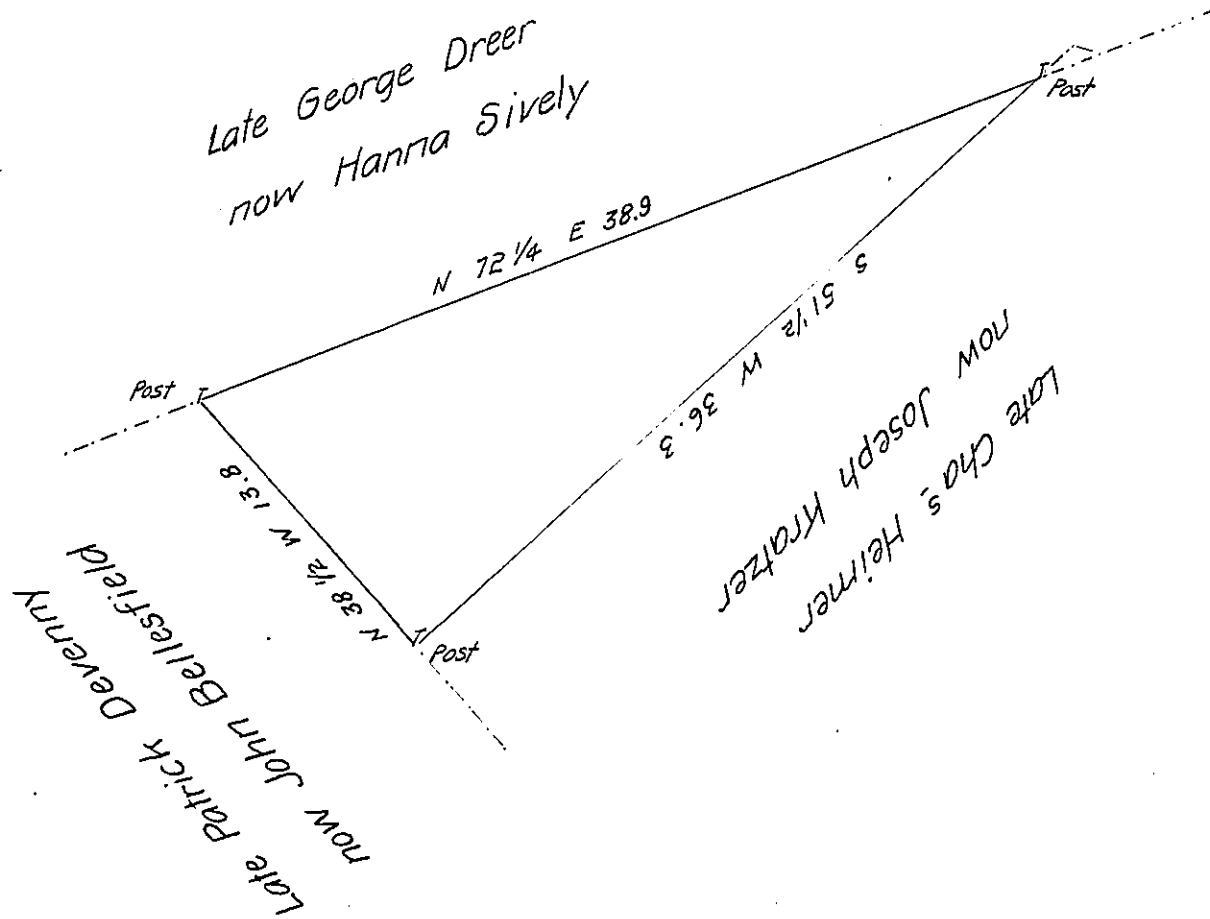 Late George Dreer
now Hanna Sively
Post
N 72 1/4 E 38.9
Post
S 51 1/2 W 36.3
N 38 1/2 W 13.8
Post
Late Chas Heimer
now Joseph Kratzer
Late Patrick Devenny
now John Bellesfield